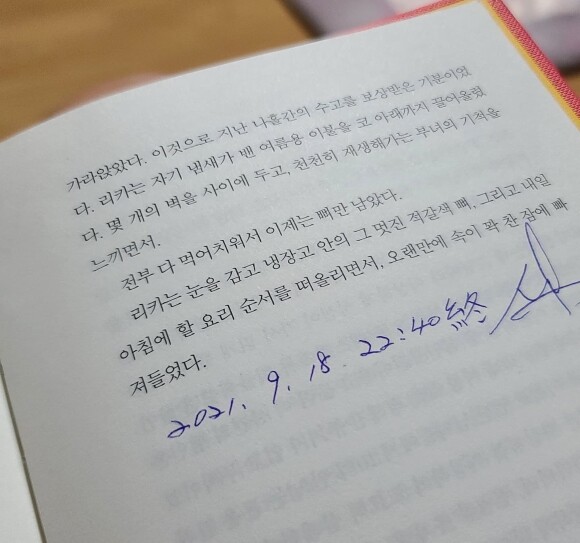 가라앉았다. 이것으로 지난 나흘간의 수고를 보상받은 기분이었
다. 리카는 자기 냄새가 밴 여름용 이불을 코 아래까지 끌어올렸
다. 몇 개의 벽을 사이에 두고, 천천히 재생해가는 부녀의 기척을
느끼면서.
전부 다 먹어치워서 이제는 뼈만 남았다.
리카는 눈을 감고 냉장고 안의 그 멋진 적갈색 뼈, 그리고 내일
아침에 할 요리 순서를 떠올리면서, 오랜만에 속이 꽉 찬 잠에 빠
져들었다.
2021. 9. 18. 22:40 終